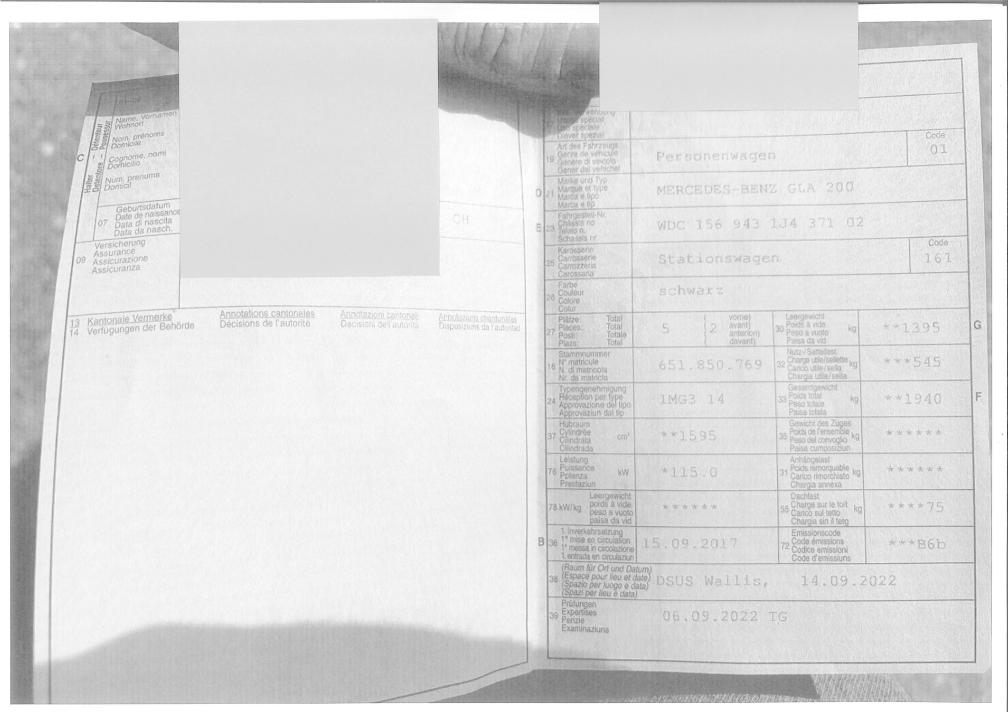 C
Halter
Détenteur
Detentore
Possessur
Name, Vornamen
Wohnort
Nom, prénoms
Domicile
Cognome, nomi
Domicilio
Num, prenums
Domicil
07
Geburtsdatum
Date de naissance
Data di nascita
Data da nasch.
CH
09
Versicherung
Assurance
Assicurazione
Assicuranza
13 Kantonale Vermerke
14 Verfügungen der Behörde
Annotations cantonales
Décisions de l'autorité
Annotazioni cantonali
Decisioni dell'autorità
Annotaziuns chantunalas
Disposiziuns da l'autoritad
Uso speciale
Diever spezial
19
Art des Fahrzeugs
Genre de véhicule
Genere di veicolo
Gener dal vehichel
Personenwagen
Code
01
D 21
Marke und Typ
Marque et type
Marca e tipo
Marca e tip
MERCEDES-BENZ GLA 200
E 23
Fahrgestell-Nr.
Châssis no
Telaio n.
Schassis nr.
WDC 156 943 1J4 371 02
25
Karosserie
Carrosserie
Carrozzeria
Carossaria
Stationswagen
Code
161
26
Farbe
Couleur
Colore
Colur
schwarz
27
Plätze: Total
Places: Total
Posti: Totale
Plazs: Total
5 ( 2
vorne)
avant)
anteriori)
davant)
30
Leergewicht
Poids à vide
Peso a vuoto
Paisa da vid
kg
**1395
G
18
Stammnummer
N° matricule
N. di matricola
Nr. da matricla
651.850.769
32
Nutz-/Sattellast
Charge utile/sellette
Carico utile/sella
Chargia utile/sella
kg
***545
24
Typengenehmigung
Réception par type
Approvazione del tipo
Approvaziun dal tip
1MG3 14
33
Gesamtgewicht
Poids total
Peso totale
Paisa totala
kg
**1940
F
37
Hubraum
Cylindrée
Cilindrata
Cilindrada
cm³
**1595
35
Gewicht des Zuges
Poids de l'ensemble
Peso del convoglio
Paisa cumposiziun
kg
******
76
Leistung
Puissance
Potenza
Prestaziun
kW
*115.0
31
Anhängelast
Poids remorquable
Carico rimorchiato
Chargia annexa
kg
******
78 kW/kg
Leergewicht
poids à vide
peso a vuoto
paisa da vid
******
55
Dachlast
Charge sur le toit
Carico sul tetto
Chargia sin il tetg
kg
****75
B 36
1. Inverkehrsetzung
1re mise en circulation
1a messa in circolazione
1. entrada en circulaziun
15.09.2017
72
Emissionscode
Code émissions
Codice emissioni
Code d'emissiuns
***B6b
38
(Raum für Ort und Datum)
(Espace pour lieu et date)
(Spazio per luogo e data)
(Spazi per lieu e data)
DSUS Wallis, 14.09.2022
39
Prüfungen
Expertises
Perizie
Examinaziuns
06.09.2022 TG